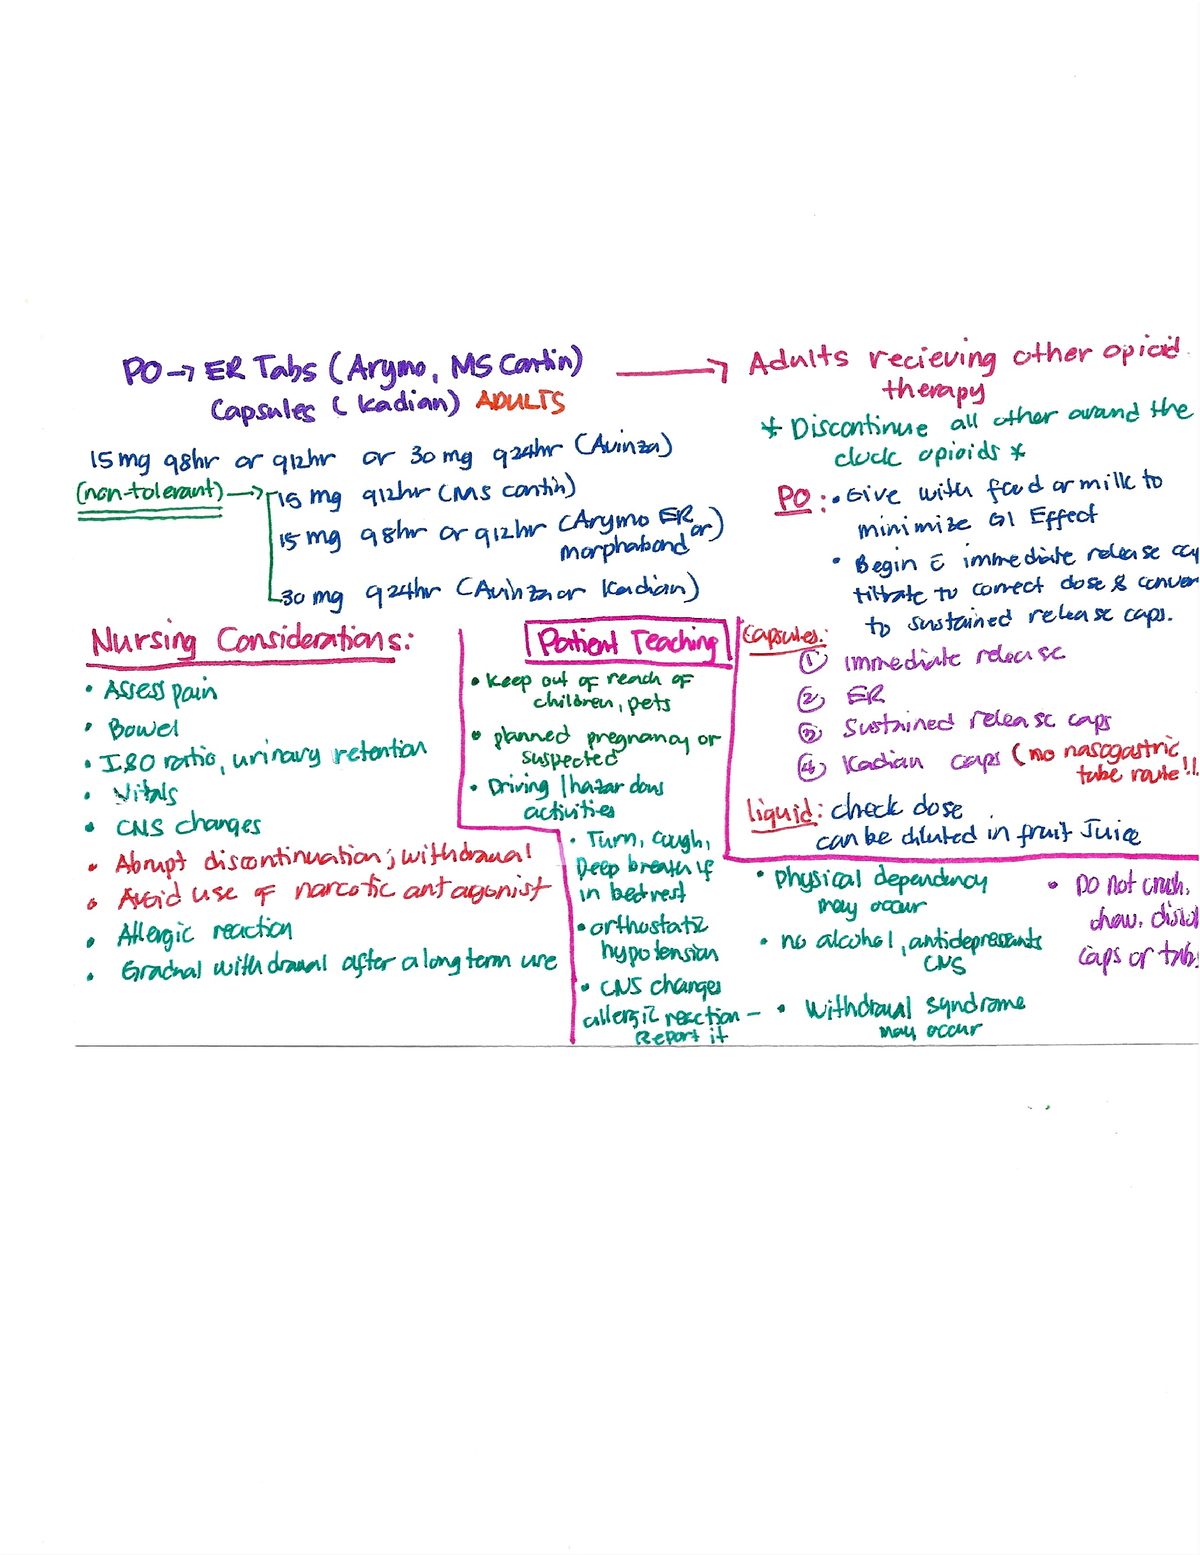 PO → ER Tabs (Arymo, MS Contin)
Capsules (Kadian) ADULTS
15 mg q8hr or q12hr or 30 mg q24hr (Avinza)
(non-tolerant) → 15 mg q12hr (MS contin)
15 mg q8hr or q12hr (Arymo ER or)
morphabond
30 mg q24hr (Avinza or Kadian)
→ Adults recieving other opioid
therapy
* Discontinue all other around the
clock opioids *
PO: • Give with food or milk to
minimize GI Effect
• Begin c̄ immediate release
titrate to correct dose &
to sustained release caps.
Capsules:
① immediate release
② ER
③ Sustained release caps
④ Kadian caps (no nasogastric
tube route!!
liquid: check dose
can be diluted in fruit Juice
Nursing Considerations:
• Assess pain
• Bowel
• I&O ratio, urinary retention
• Vitals
• CNS changes
• Abrupt discontinuation; withdrawal
• Avoid use of narcotic antagonist
• Allergic reaction
• Gradual withdrawal after a long term use
Patient Teaching
• Keep out of reach of
children, pets
• planned pregnancy or
suspected
• Driving / hazardous
activities
• Turn, cough,
Deep breath if
in bedrest
• orthostatic
hypotension
• CNS changes
allergic reaction –
Report it
• physical dependency
may occur
• no alcohol, antidepressants
CNS
• Withdrawal syndrome
may occur
• Do not crush,
chew,
caps or